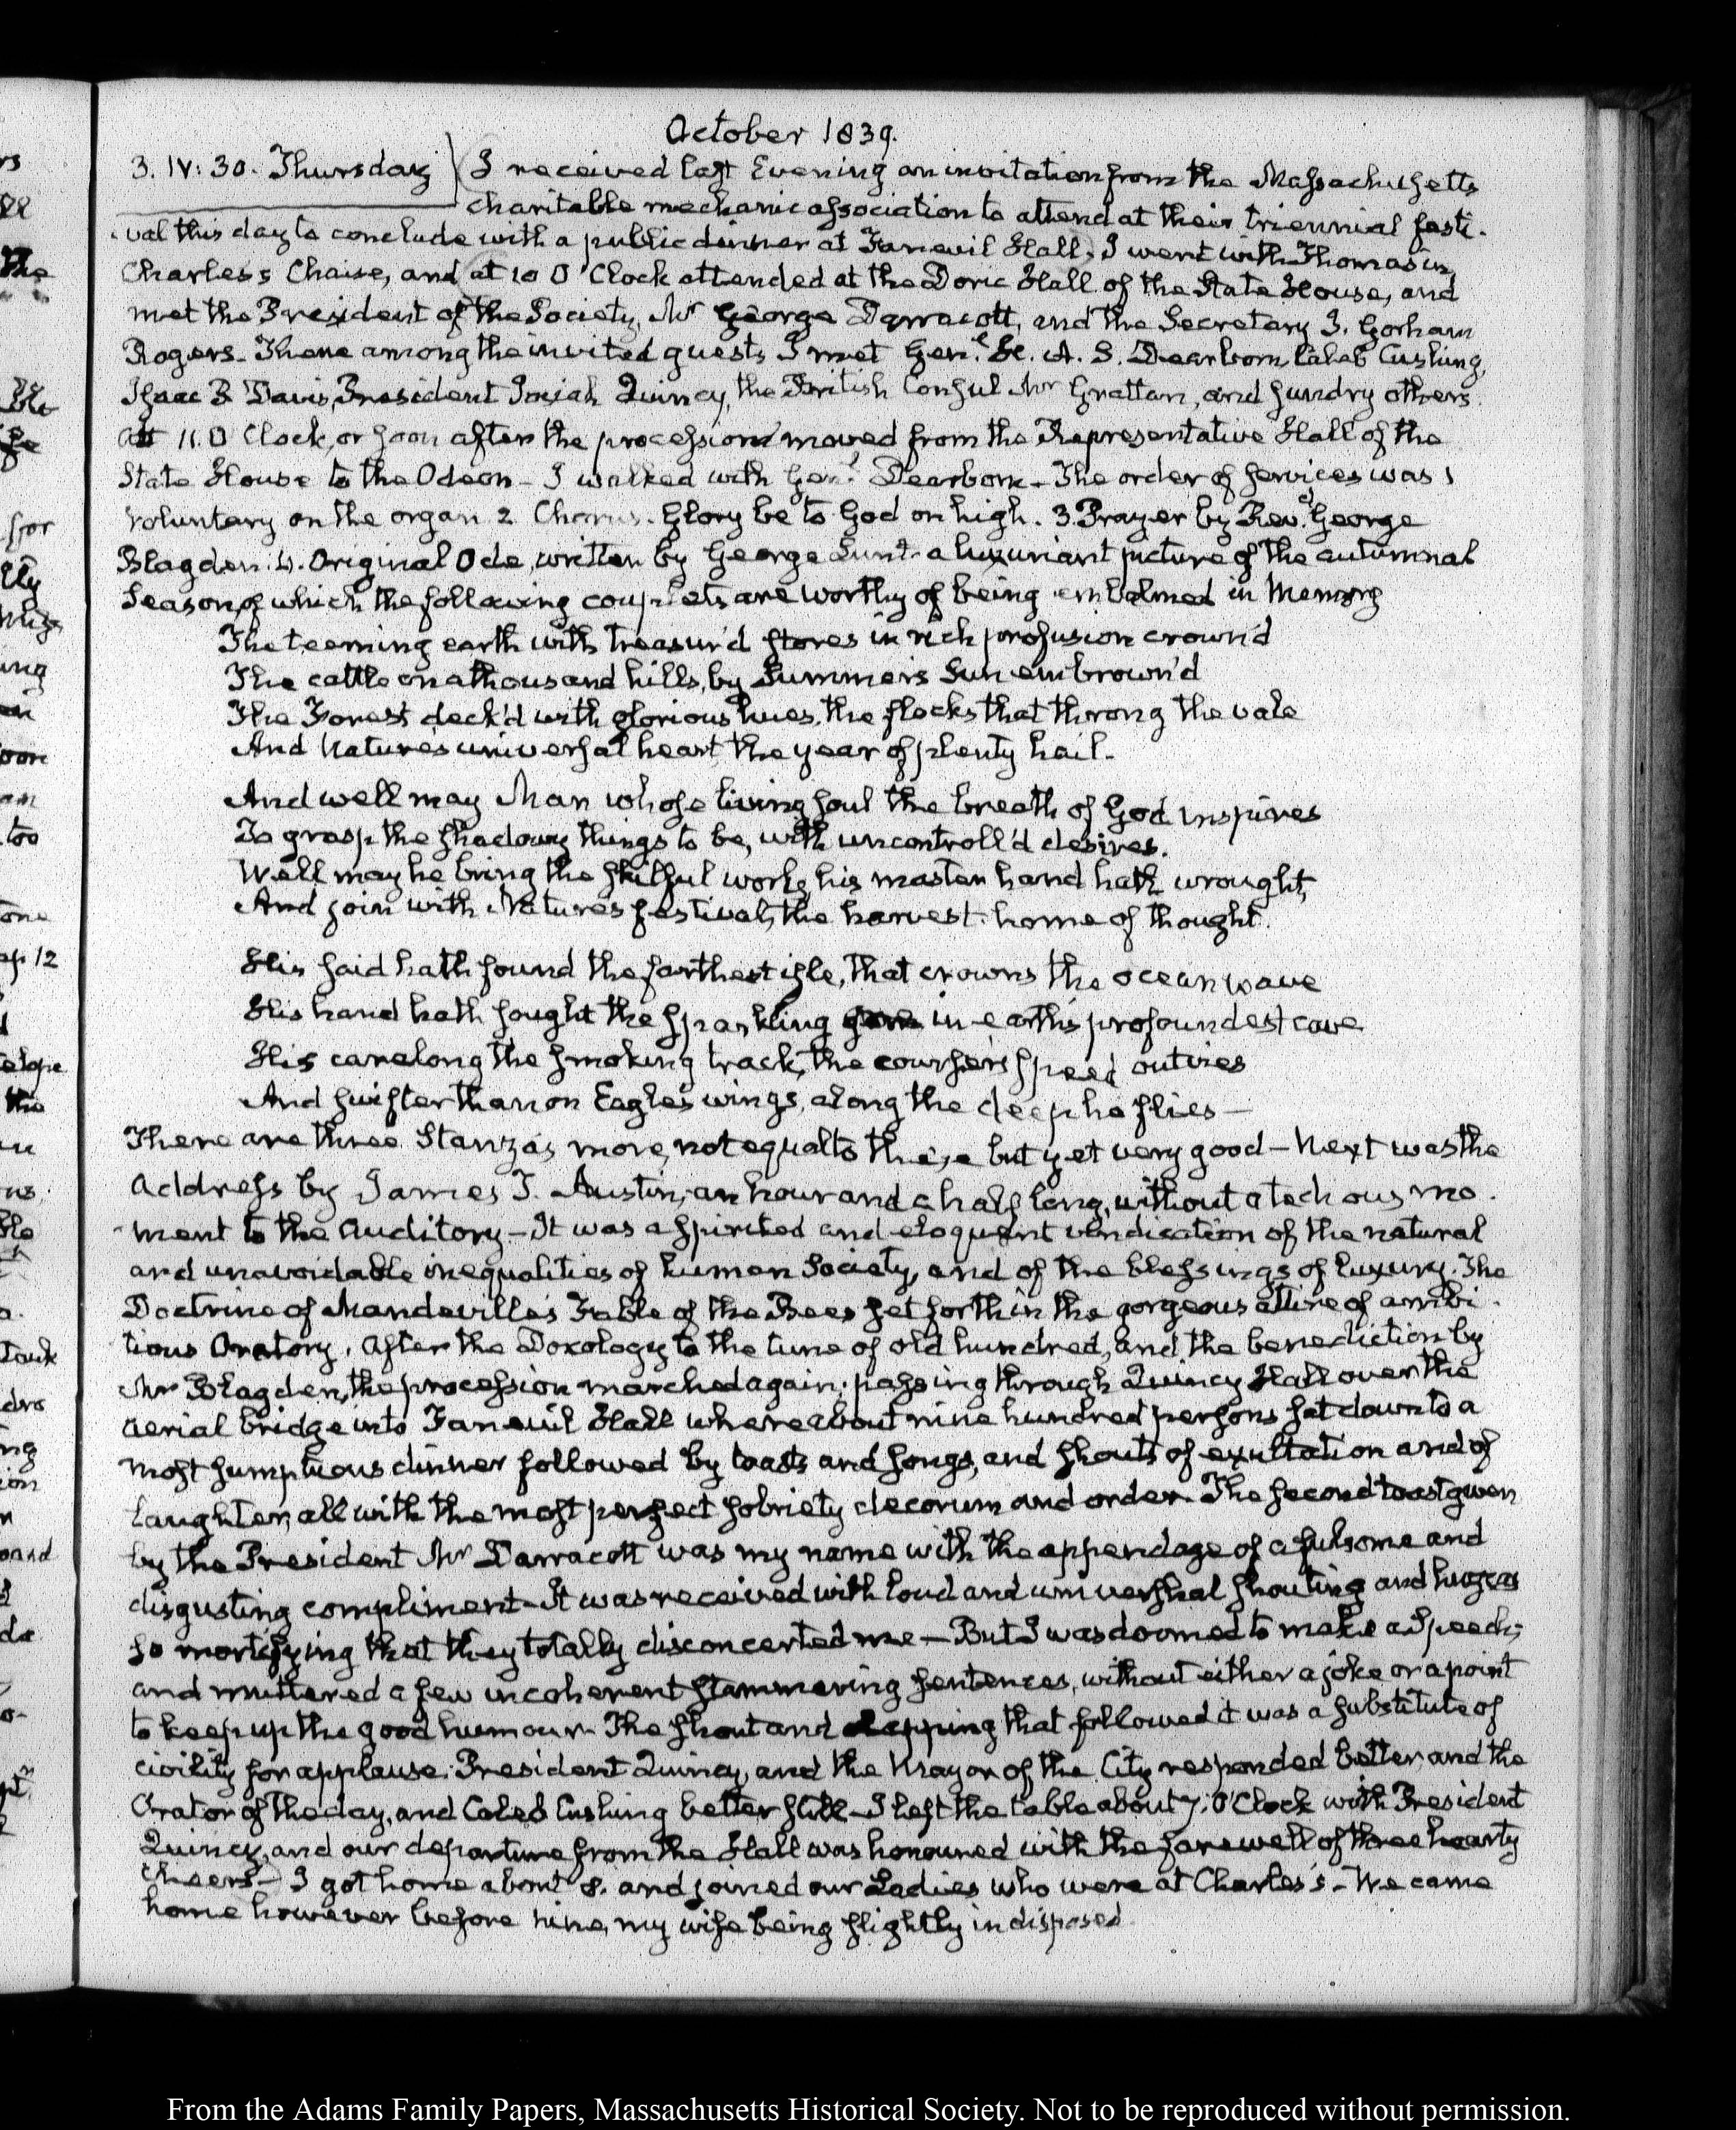 October 1839.
3. IV: 30. Thursday I received last Evening an invitation from the Massachusetts
charitable mechanic association to attend at their triennial festi-
val this day to conclude with a public dinner at Faneuil Hall. I went with Thomas in
Charles's Chaise, and at 10 O'Clock attended at the Doric Hall of the State House, and
met the President of the Society, Mr George Darracott, and the Secretary J. Gorham
Rogers. There among the invited guests I met Genl. H. A. S. Dearborn, Caleb Cushing,
Isaac P Davis, President Josiah Quincy, the British Consul Mr Grattan, and sundry others.
At 11. O'Clock, or soon after the procession moved from the Representative Hall of the
State House to the Odeon - I walked with Genl. Dearborn - The order of services was 1
Voluntary on the organ 2. Chorus. Glory be to God on high. 3. Prayer by Revd. George
Blagden. 4. Original Ode, written by George Lunt - a luxuriant picture of the autumnal
Season, of which the following couplets are worthy of being embalmed in Memory
The teeming earth with treasur'd stores in rich profusion crown'd
The cattle on a thousand hills, by Summer's Sun embrown'd
The Forest deck'd with glorious hues, the flocks that throng the vale
And Nature's universal heart the year of plenty hail.
And well may Man whose living soul the breath of God inspires
To grasp the shadowy things to be, with uncontroll'd desires.
Well may he bring the skilful works his master hand hath wrought,
And join with Nature's festival, the harvest-home of thought.
His said hath found the farthest isle, that crowns the ocean wave
His hand hath sought the sparkling gem in earth's profoundest cave
His car along the smoking track, the courser's speed outvies
And swifter than on Eagle's wings, along the deep he flies -
There are three Stanzas more, not equal to these but yet very good - Next was the
Address by James T. Austin, an hour and a half long, without a tedious mo-
ment to the auditory - It was a spirited and eloquent vindication of the natural
and unavoidable inequalities of human Society, and of the blessings of luxury. The
Doctrine of Mandeville's Fable of the Bees set forth in the gorgeous attire of ambi-
tious Oratory. After the Doxology to the tune of old hundred, and the benediction by
Mr Blagden, the procession marched again; passing through Quincy Hall over the
aerial bridge into Faneuil Hall where about nine hundred persons sat down to a
most sumptuous dinner followed by toasts and songs, and shouts of exultation and of
laughter, all with the most perfect sobriety decorum and order. The second toast given
by the President Mr Darracott was my name with the appendage of a fulsome and
disgusting compliment - It was received with loud and universal shouting and huzzas
so mortifying that they totally disconcerted me - But I was doomed to make a Speech;
and muttered a few incoherent stammering sentences, without either a joke or a point
to keep up the good humour. The shout and clapping that followed it was a substitute of
civility for applause. President Quincy, and the Mayor of the City responded better, and the
Orator of the day, and Caleb Cushing better still - I left the table about 7. O'Clock with President
Quincy, and our departure from the Hall was honoured with the farewell of three hearty
cheers - I got home about 8. and joined our Ladies who were at Charles's - We came
home however before nine, my wife being slightly indisposed.
From the Adams Family Papers, Massachusetts Historical Society. Not to be reproduced without permission.